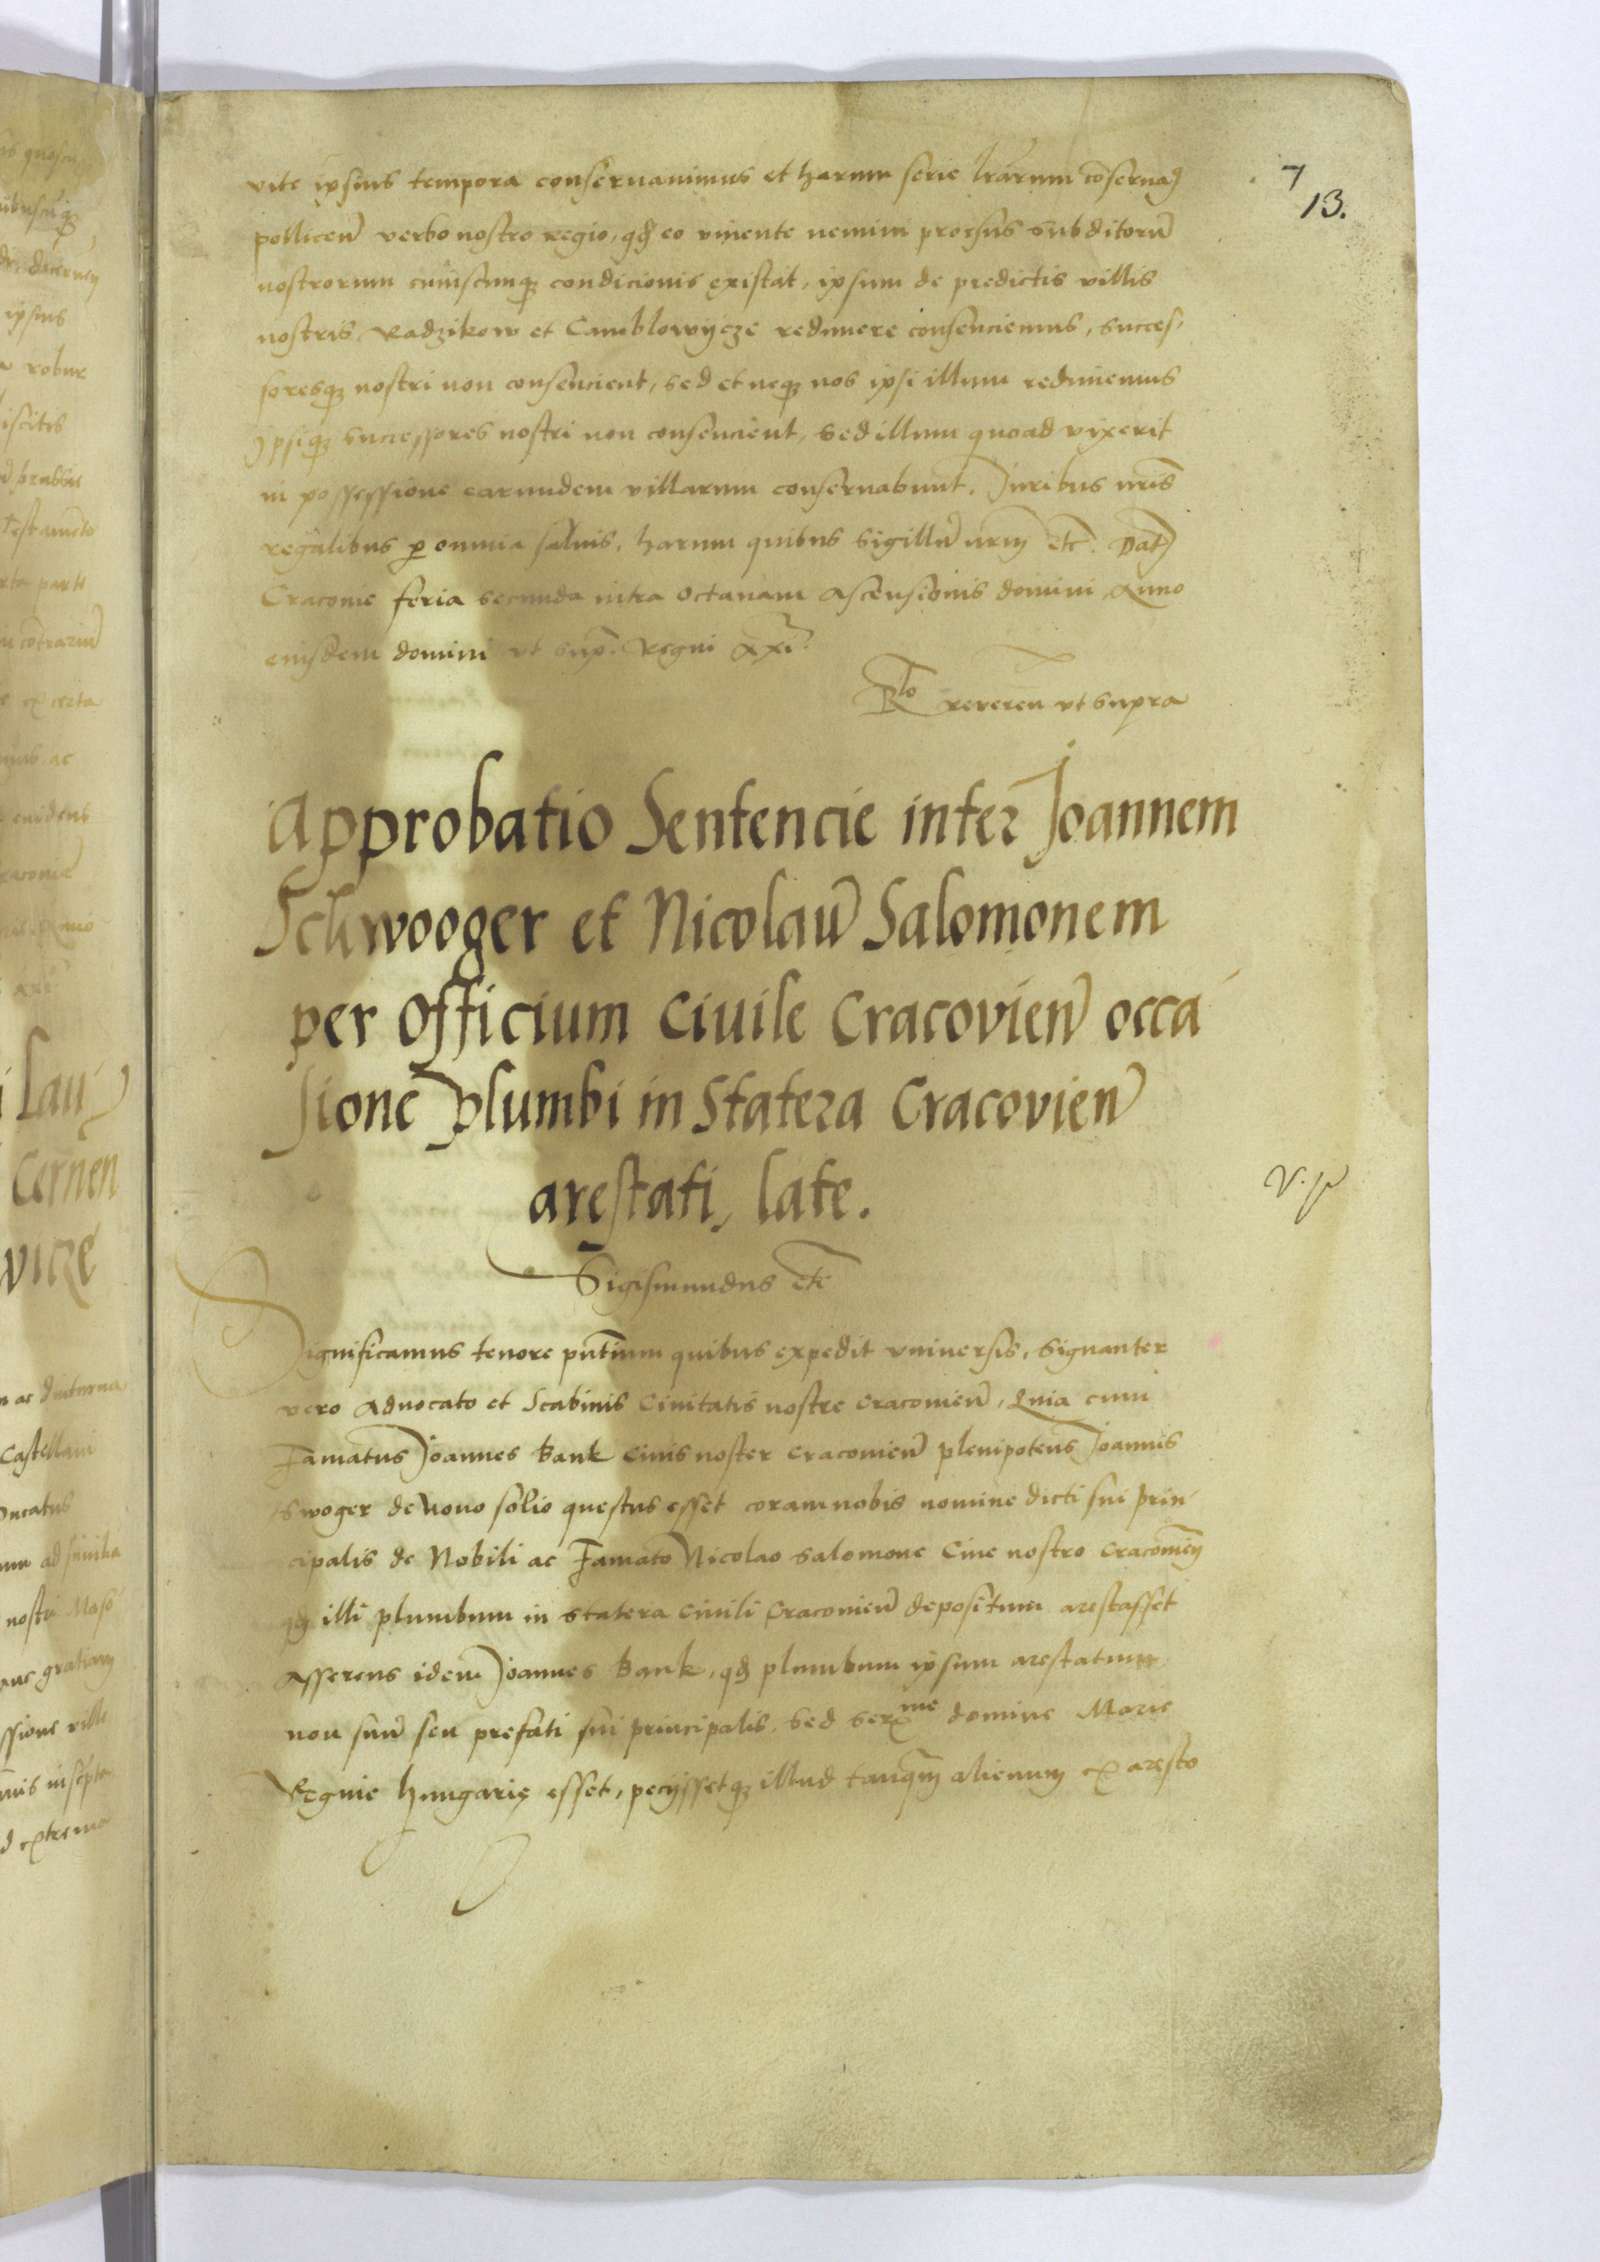 7
13.
vite ipsius tempora conservauimus et harum serie lrarum coservad
pollicen verbo nostro regio, qd eo viuente nemini prorsus subditoru
nostrorum cuiuscumqz condicionis existat, ipsum de predictis villis
nostris Radzikow et Camblowycze redimere consenciemus, succes,
soresqz nostri non consencient, sed et neqz nos ipsi illum redimemus
Ipsiqz successores nostri non consencient, sed illum quoad vixerit
in possessione earundem villarum conseruabunt. Juribus nris
regalibus p omnia saluis, harum quibus sigillu nrm etc. Dat
Cracouie feria secunda intra octauam Ascensionis domini Anno
eiusdem domini vt sup. Regni xxi.
Rlo reveren vt supra
Approbatio Sentencie inter Joannem
Schwooger et Nicolau Salomonem
per Officium Ciuile Cracovien occa
sione plumbi in Statera Cracovien
arestati, late.
V. p
Sigismundus etc
Significamus tenore pntium quibus expedit vniuersis, signanter
vero Aduocato et Scabinis Ciuitatis nostre Cracouien, Quia cum
Famatus Joannes Bank Ciuis noster Cracouien plenipotens Joannis
Swoger de Nouo solio questus esset coram nobis nomine dicti sui prin
cipalis de Nobili ac Famato Nicolao Salomone Ciue nostro Cracouien
qd illi plumbum in statera Ciuili Cracouien depositum arestasset
Asserens idem Joannes Bank, qd plumbum ipsum arestatum
non suu seu prefati sui principalis. Sed serme domine Marie
Regine Hungarie esset, pecijssetqz illud tanqm alienum ex aresto